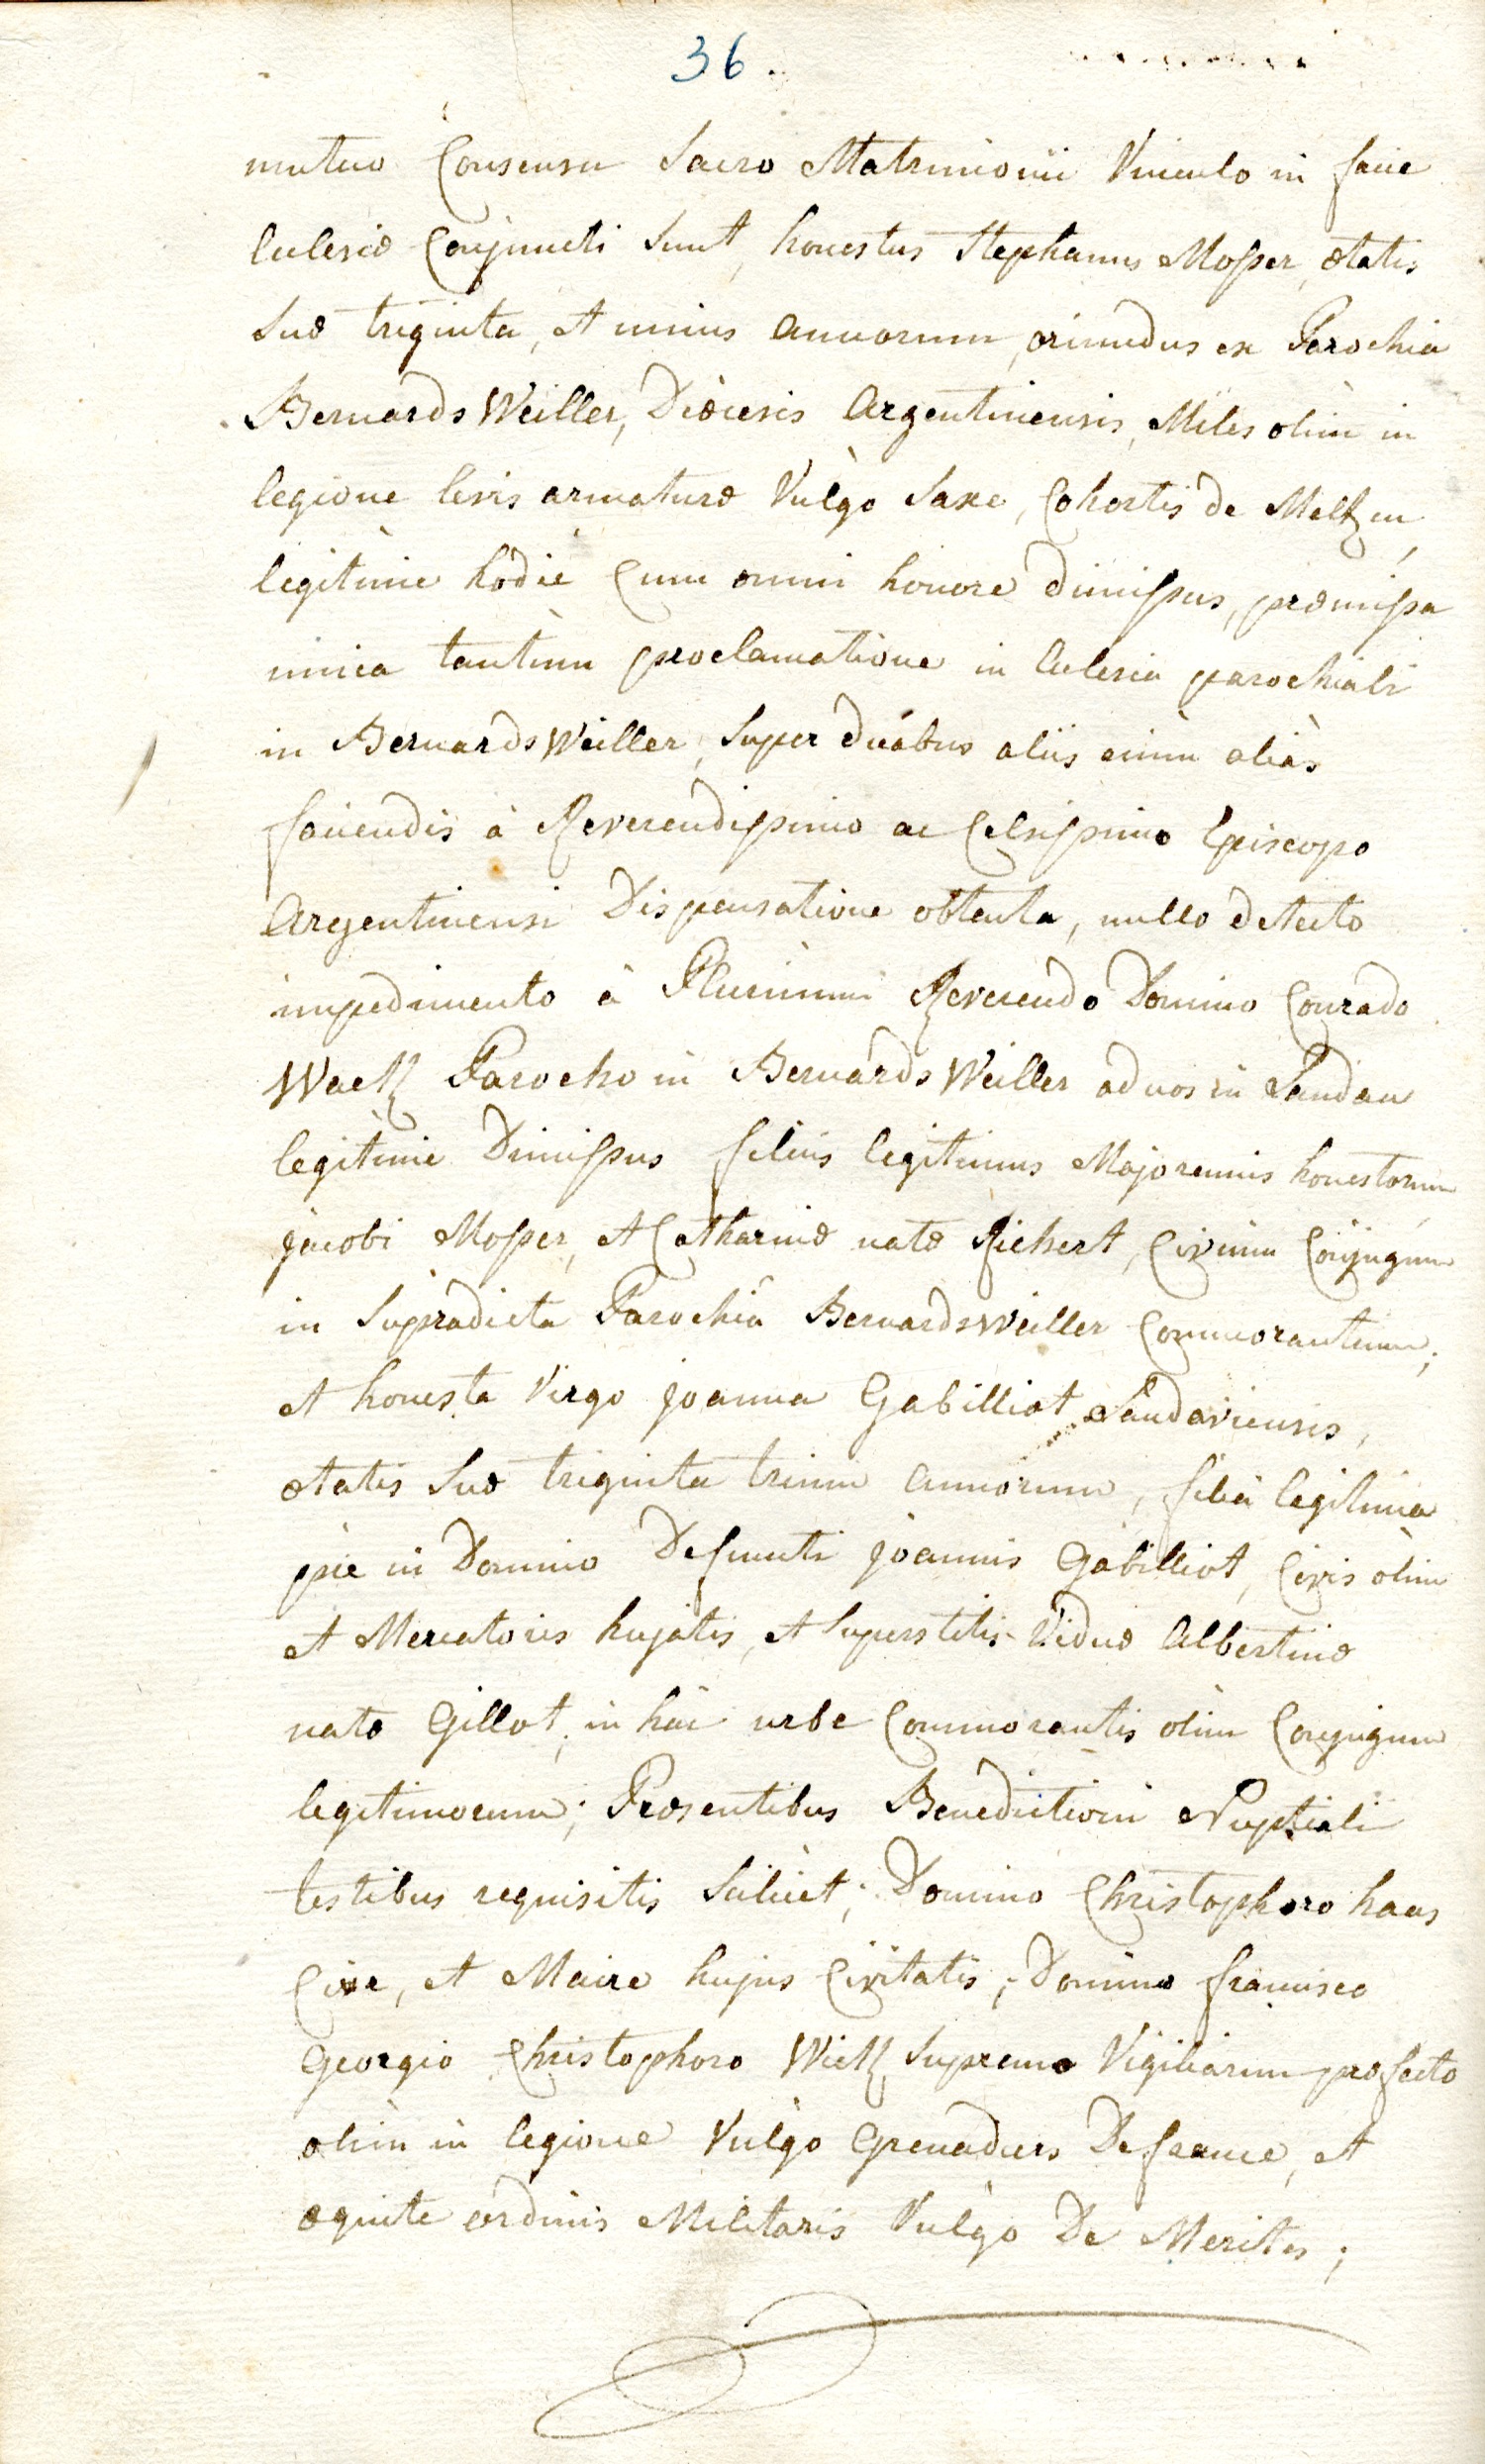 36.
mutuo Consensu Sacro Matrimonii Vinculo in facie
Eclesiæ Conjuncti Sunt, honestus Stephanus Mosser, ætatis
Suæ triginta, et unius annorum, oriundus ex Parochia
BernardsWeiller, Diœcesis argentinensis, Miles olim in
legione levis armaturæ Vulgò Saxe, Cohortis de Meltzen
legitimè hodiè Cum omni honore dimissus, præmissa
unica tantùm proclamatione in Eclesia parochiali
in BernardsWeiller, Super duabus aliis enim aliàs
faciendis à Reverendissimo ac Celsissimo Episcopo
argentinensi Dispensatione obtenta, nullo detecto
impedimento à Plurimùm Reverendo Domino Conrado
Waltz Parocho in BernardsWeiller ad nos in Landau
legitimè Dimissus filius legitimus Majorennis honestorum
jacobi Mosser, et Catharinæ natæ Richert, Civium Conjugum
in Supradicta Parochiâ Bernardsweiller Commorantium;
et honesta Virgo joanna Gabilliot Landaviensis,
ætatis Suæ triginta trium annorum, filia legitima
piè in Domino Defuncti joannis Gabilliot, Civis olim
et Mercatoris hujatis, et Superstitis Viduæ Albertinæ
natæ Gillot, in hâc urbe Commorantis olim Conjugum
legitimorum; Præsentibus Benedictioni Nuptiali
testibus requisitis Scilicet; Domino Christophoro haas
Cive, et Maire hujus Civitatis; Domino francisco
Georgio Christophoro Wiltz Supremo Vigiliarum præfecto
olim in legione Vulgò Grenadiers De france, et
æquite ordinis Militaris Vulgò De Merites;